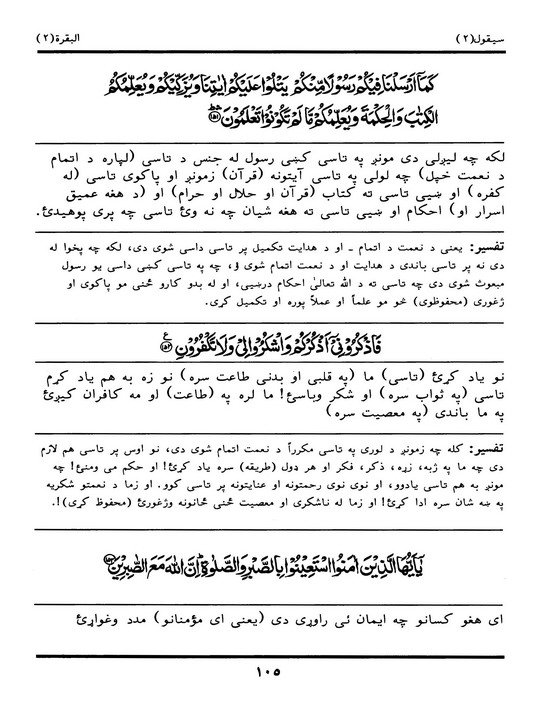 سیقول(۲)
البقرة(۲)
كَمَآ اَرْسَلْنَا فِيْكُمْ رَسُوْلًا مِّنْكُمْ يَتْلُوْا عَلَيْكُمْ اٰيٰتِنَا وَيُزَكِّيْكُمْ وَيُعَلِّمُكُمُ
الْكِتٰبَ وَالْحِكْمَةَ وَيُعَلِّمُكُمْ مَّا لَمْ تَكُوْنُوْا تَعْلَمُوْنَ ۝۱۵۱
لکه چه لیږلی دی مونږ په تاسی کښی رسول له جنس د تاسی (لپاره د اتمام
د نعمت خپل) چه لولی په تاسی آیتونه (قرآن) زمونږ او پاکوی تاسی (له
کفره) او ښیی تاسی ته کتاب (قرآن او حلال او حرام) او (د هغه عمیق
اسرار او) احکام او ښیی تاسی ته هغه شیان چه نه وئ تاسی چه پری پوهیدئ.
تفسیر: یعنی د نعمت د اتمام ـ او د هدایت تکمیل پر تاسی داسی شوی دی، لکه چه پخوا له
دی نه پر تاسی باندی د هدایت او د نعمت اتمام شوی ؤ، چه په تاسی کښی داسی یو رسول
مبعوث شوی دی چه تاسی ته د الله تعالیٰ احکام درښیی، او له بدو کارو ځنی مو پاکوی او
ژغوری (محفوظوی) خو مو علماً او عملاً پوره او تکمیل کړی.
فَاذْكُرُوْنِيْٓ اَذْكُرْكُمْ وَاشْكُرُوْا لِيْ وَلَا تَكْفُرُوْنِ ۝۱۵۲ ع
نو یاد کړئ (تاسی) ما (په قلبی او بدنی طاعت سره) نو زه به هم یاد کړم
تاسی (په ثواب سره) او شکر وباسئ! ما لره په (طاعت) او مه کافران کیږئ
په ما باندی (په معصیت سره)
تفسیر: کله چه زمونږ د لوری په تاسی مکرراً د نعمت اتمام شوی دی، نو اوس پر تاسی هم لازم
دی چه ما په ژبه، زړه، ذکر، فکر او هر ډول (طریقه) سره یاد کړئ! او حکم می ومنئ! چه
مونږ به هم تاسی یادوو، او نوی نوی رحمتونه او عنایتونه پر تاسی کوو. او زما د نعمتو شکریه
په ښه شان سره ادا کړئ! او زما له ناشکری او معصیت ځنی ځانونه وژغورئ (محفوظ کړی)!.
يٰٓاَيُّهَا الَّذِيْنَ اٰمَنُوا اسْتَعِيْنُوْا بِالصَّبْرِ وَالصَّلٰوةِ ۭ اِنَّ اللّٰهَ مَعَ الصّٰبِرِيْنَ ۝۱۵۳
ای هغو کسانو چه ایمان ئی راوړی دی (یعنی ای مؤمنانو) مدد وغواړئ
۱۰۵